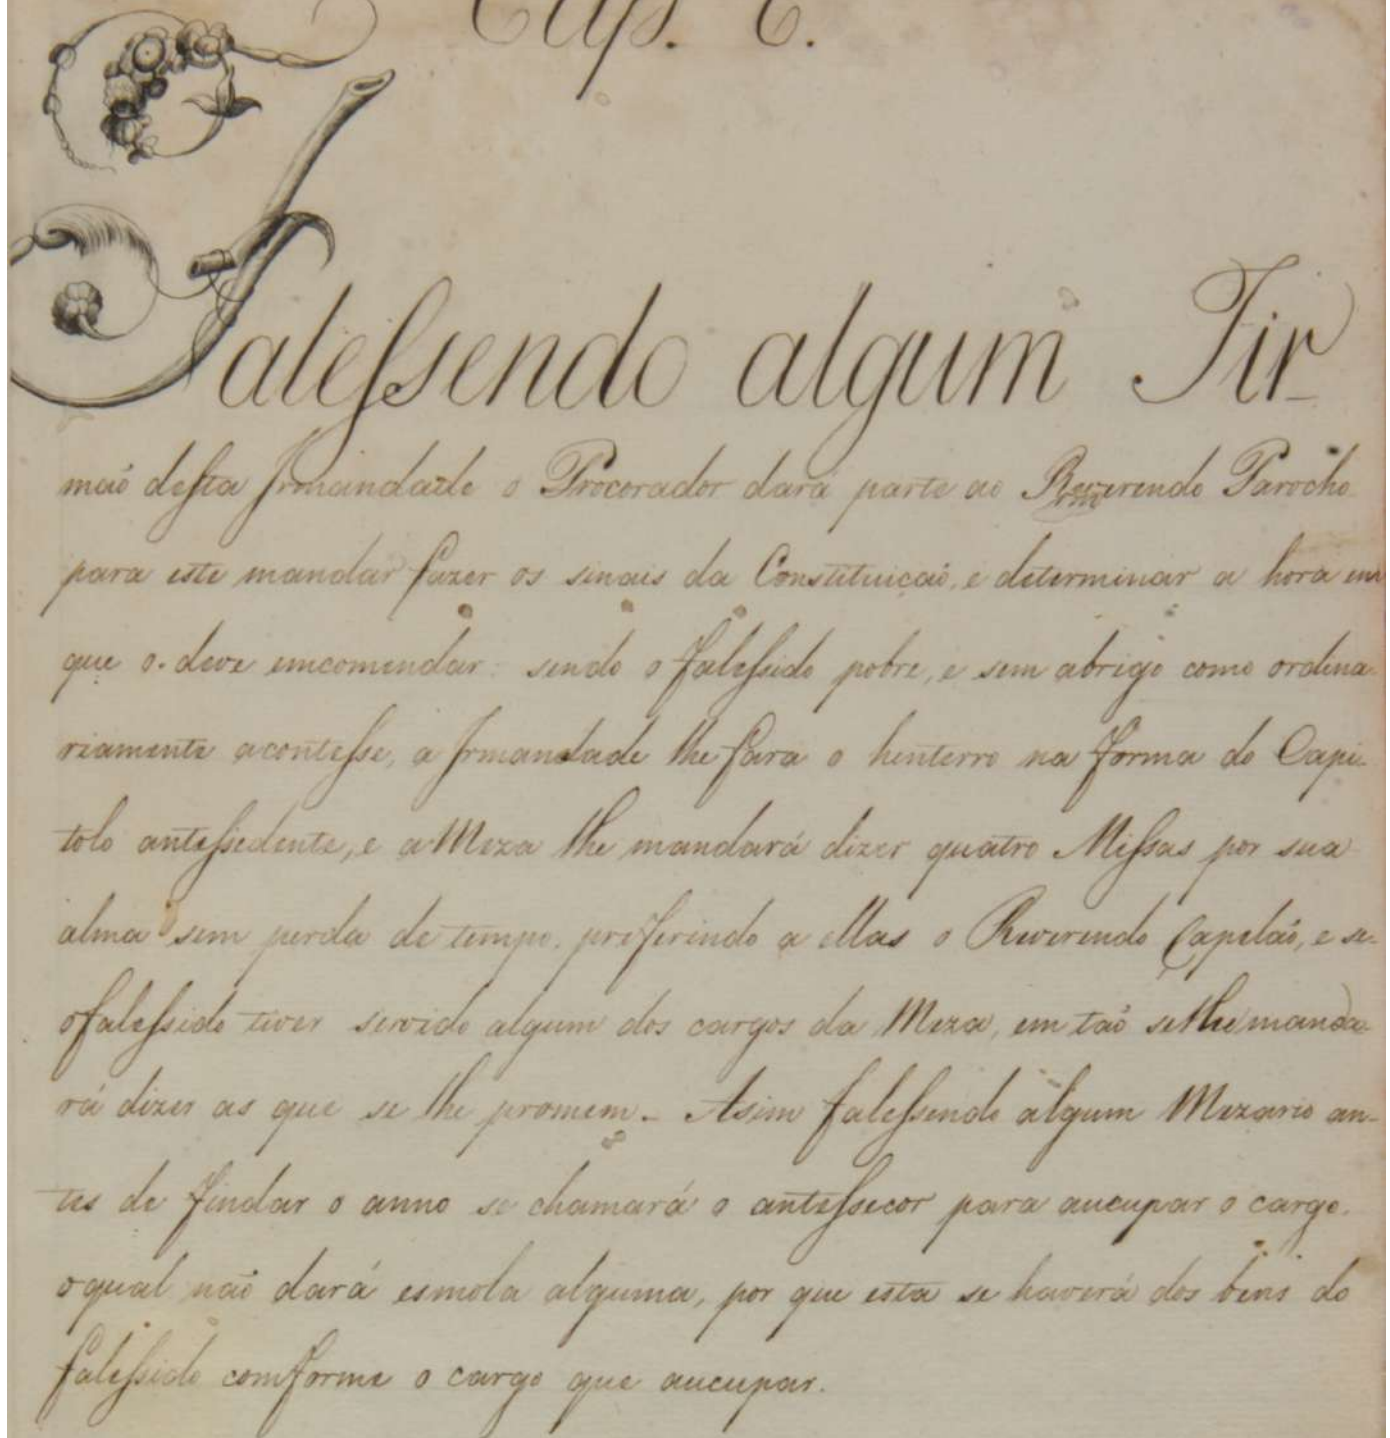 Cap. 6.
Falessendo algum Jir_
maõ desta Jrmandade o Procorador dará parte ao Reverendo Parocho
para este mandar fazer os sinais da Constituiçaõ, e determinar a hora em
que o deve emcomendar: sendo o falessido pobre, e sem abrigo como ordina-
riamente acontesse, a Jrmandade lhe fara o henterro na forma do Capi-
tolo antessedente, e a Meza lhe mandará dizer quatro Missas por sua
alma sem perda de tempo, preferindo a ellas o Reverendo Capelaõ, e se
o falessido tiver servido algum dos cargos da Meza, em taõ se lhe manda-
rá dizer as que se lhe promem_ Asim falessendo algum Mezario an-
tes de findar o anno se chamará o antessecor para aucupar o cargo.
o qual naõ dará esmola alguma, por que esta se haverá dos bens do
falessido comforme o cargo que aucupar.